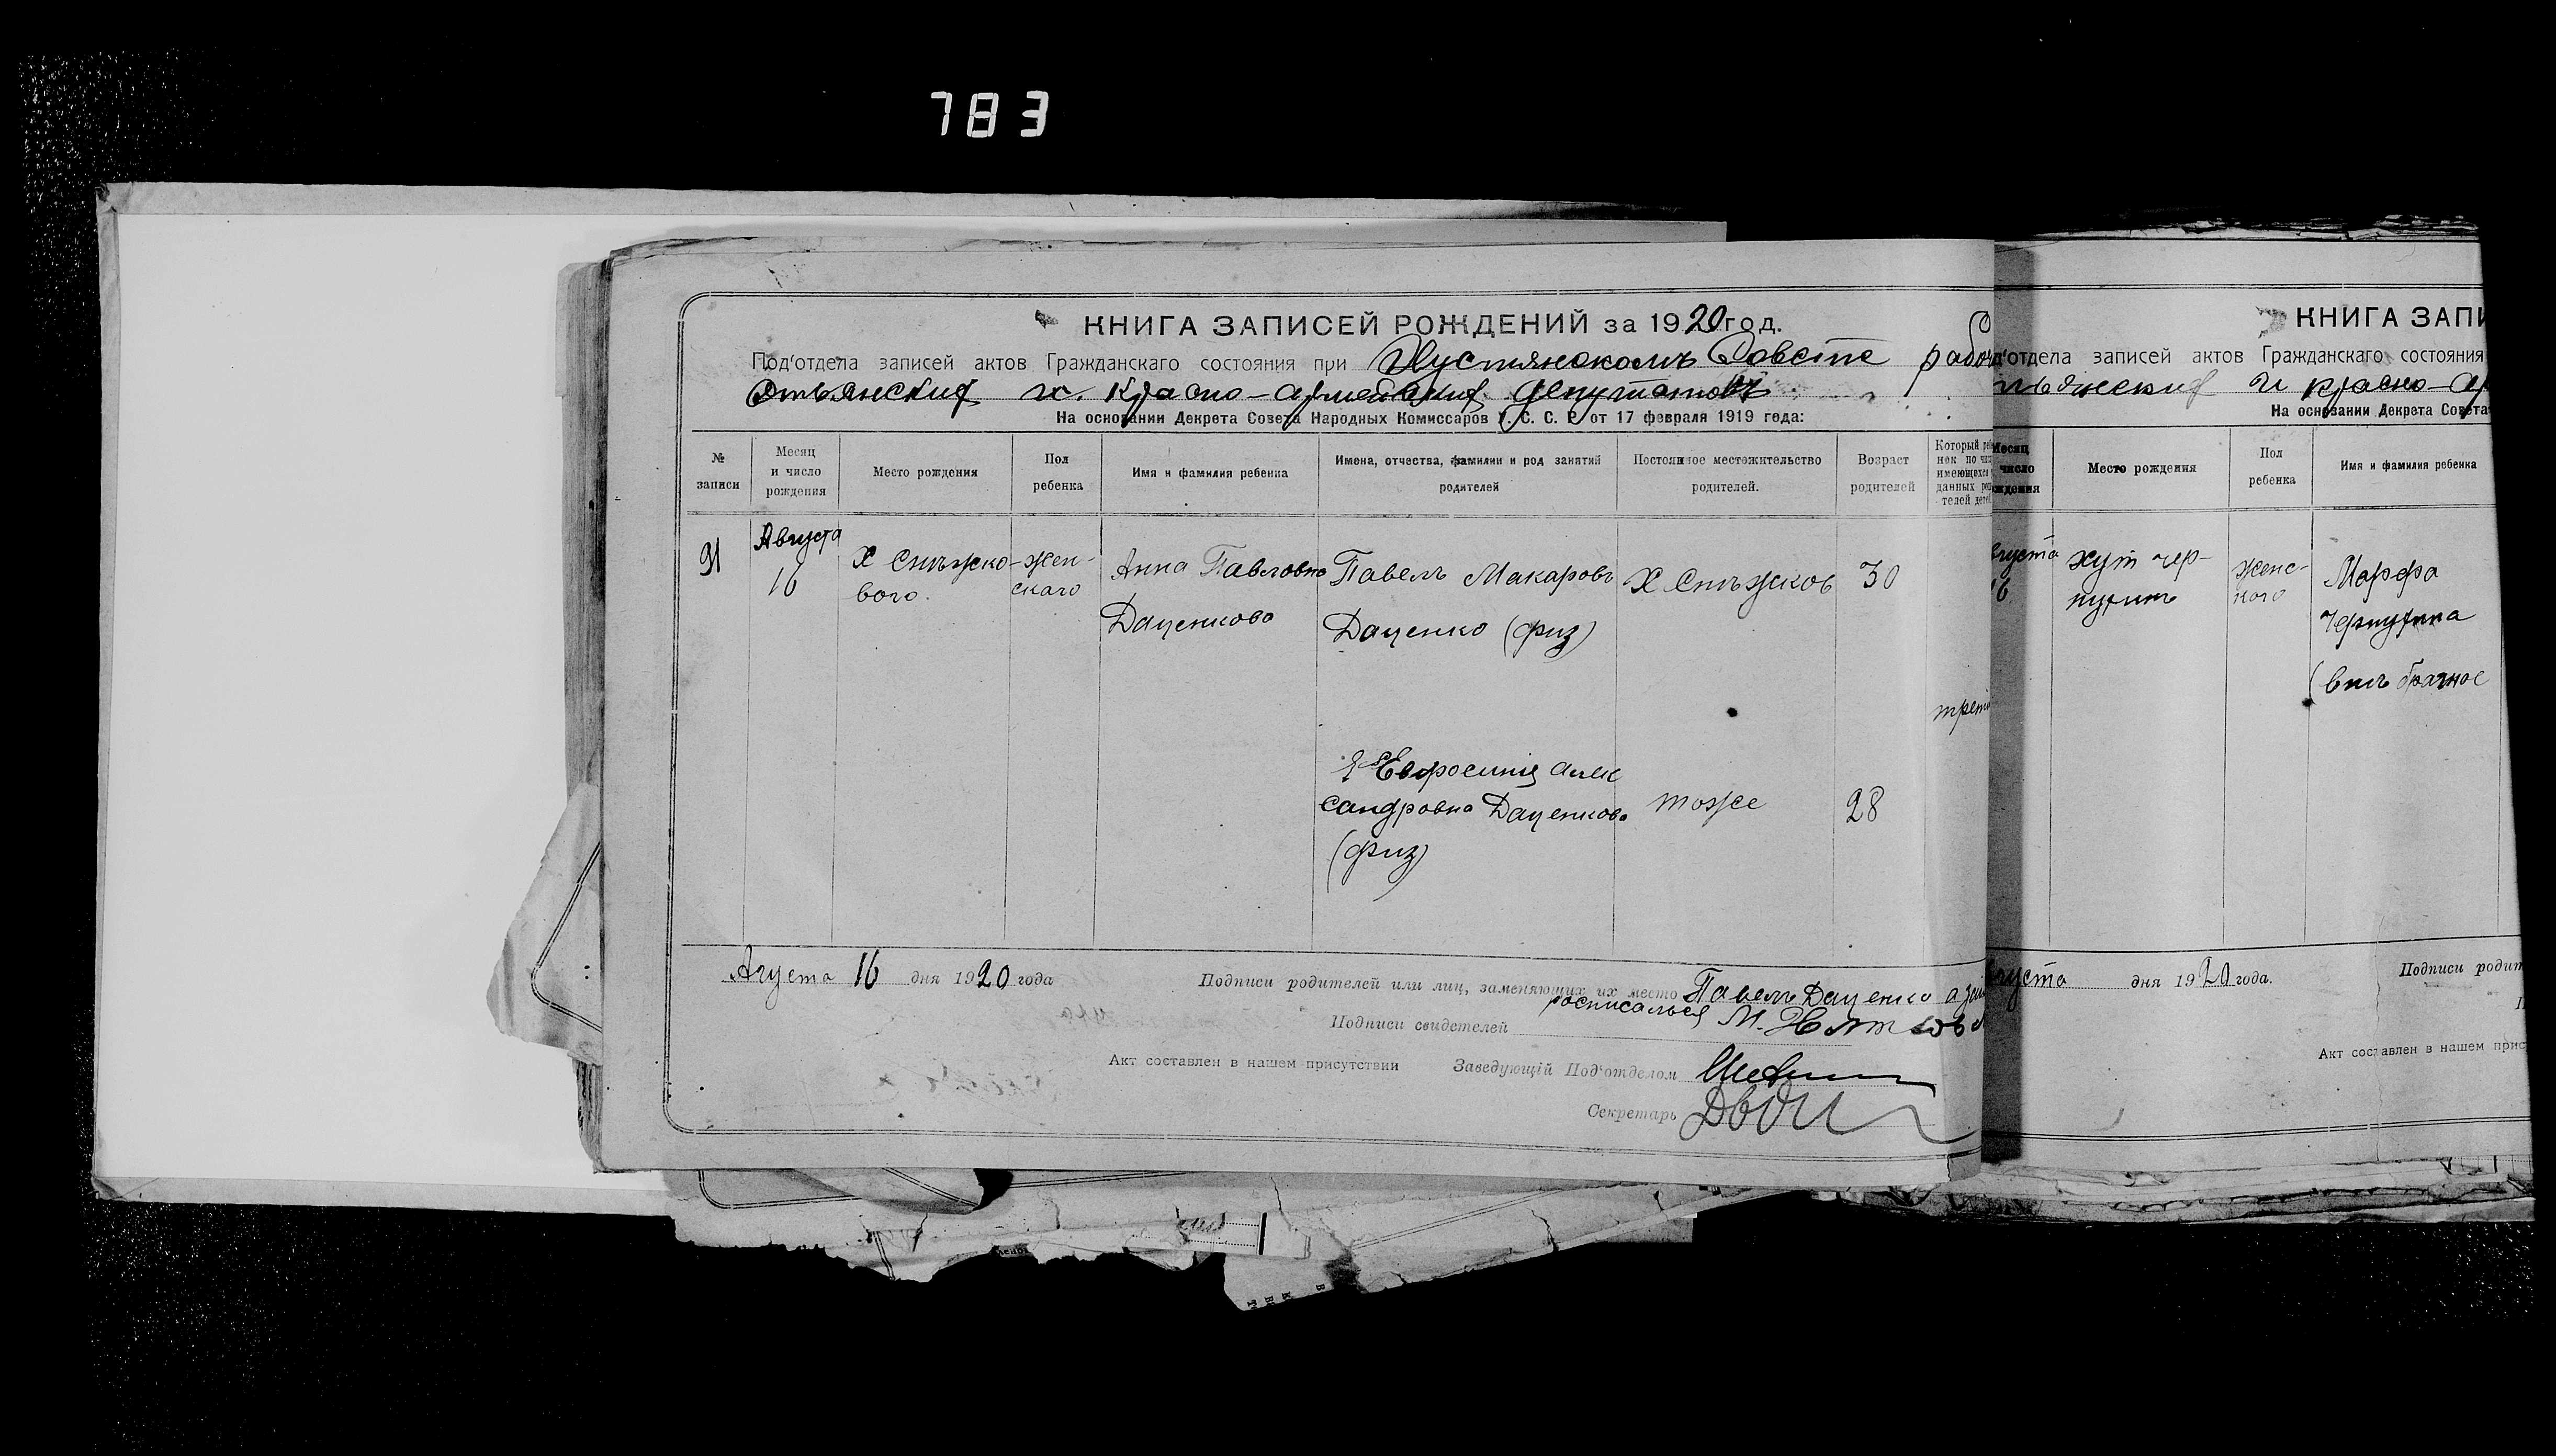 783
КНИГА ЗАПИСЕЙ РОЖДЕНИЙ за 1920 год.
Под'отдела записей актов Гражданскаго состояния при Хустянском Совете рабоч
стьянских и Красно-армейских депутатовъ
На основании Декрета Совета Народных Комиссаров У. С. С. Р. от 17 февраля 1919 года:
№ записи
Месяц и число рождения
Место рождения
Пол ребенка
Имя и фамилия ребенка
Имена, отчества, фамилии и род занятий родителей
Постоянное местожительство родителей.
Возраст родителей
Который
имеющихся
данных
телей
91
Августа
16
Х Снѣжко-
вого.
Жен-
скаго
Анна Павловна
Даценкова
Павелъ Макаровъ
Даценко (физ)
Х Снѣжков
30
трети
Евфросинія Алек
сандровна Даценкова
(физ)
тоже
28
Августа 16 дня 1920 года
Подписи родителей или лиц, заменяющих их место Павелъ Даценко а за
росписалься М.
Подписи свидетелей
Акт составлен в нашем присутствии
Заведующій Под'отделом
Секретарь
КНИГА ЗАПИ
д'отдела записей актов Гражданскаго состояния
тьянских и красно-ар
На основании Декрета Совета
Месяц
число
ждения
Место рождения
Пол ребенка
Имя и фамилия ребенка
вгуста
16
хут чер-
женс-
кого
Марфа
(внѣ брачное
густа дня 1920 года.
Подписи родит
Акт составлен в нашем прис